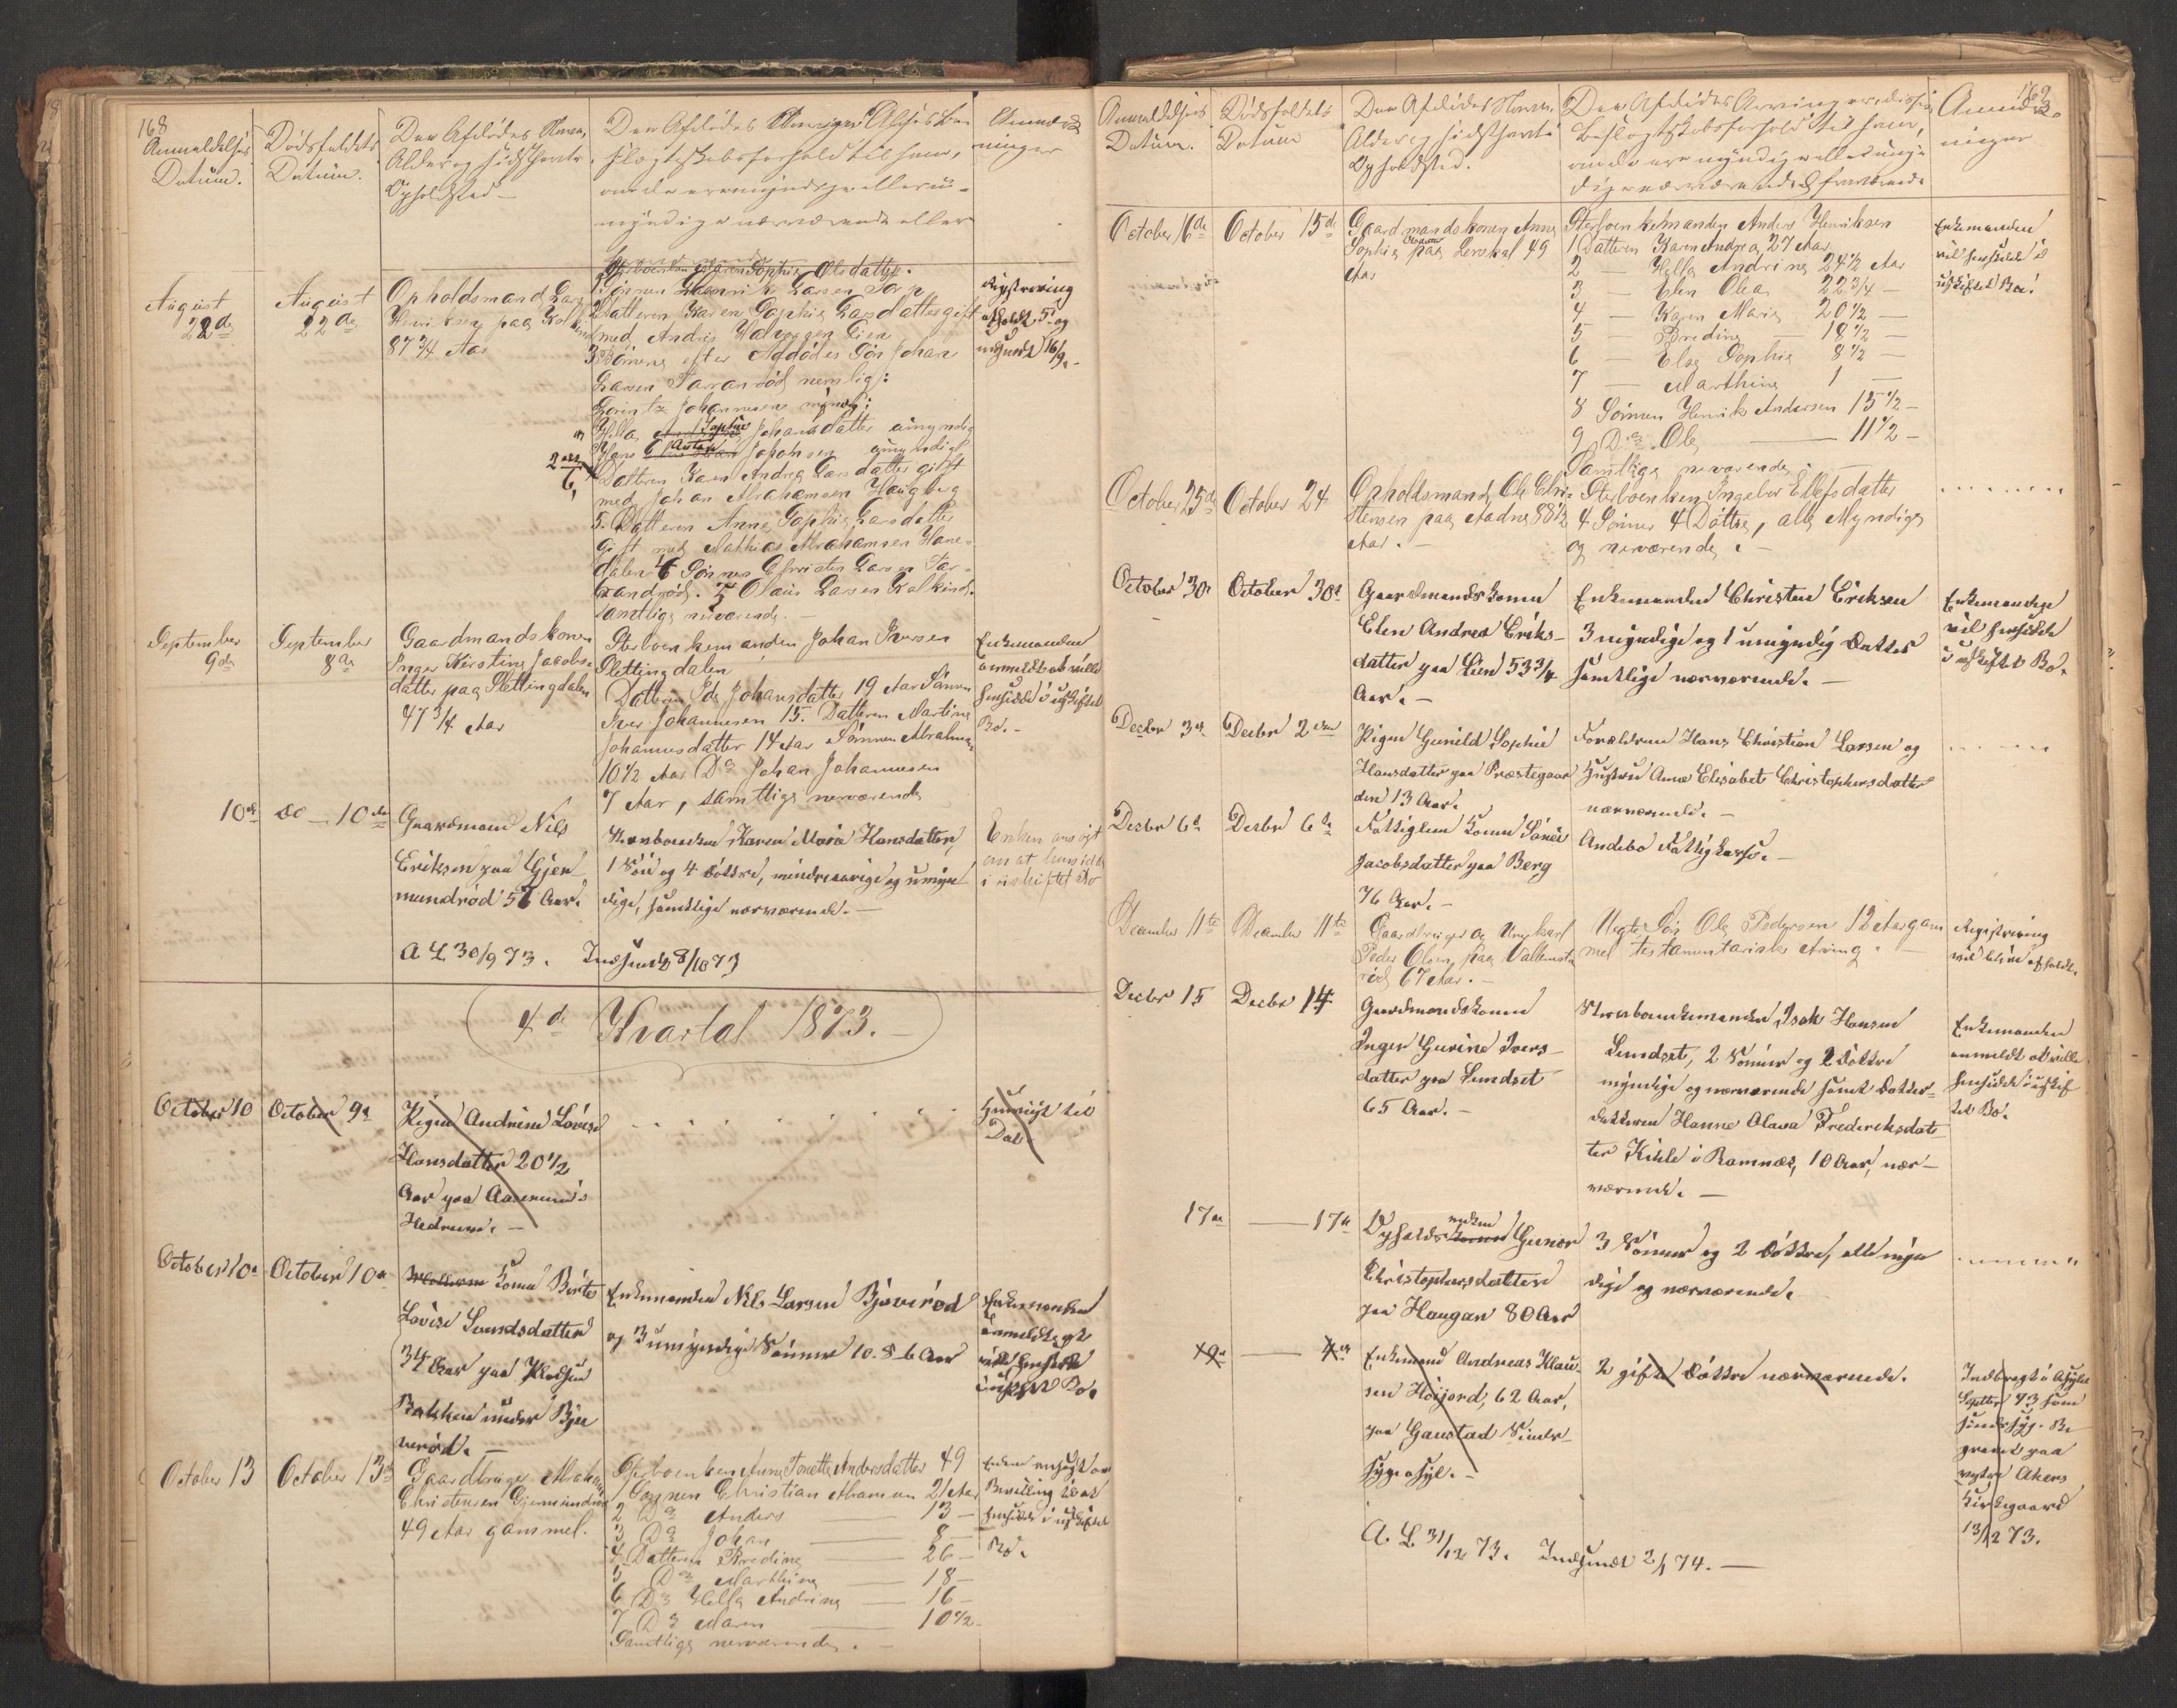 168
Anmeldelses
Datum.
Dødsfaldets
Datum.
Den Afdødes Navn,
Alder og sidste
Opholdsted
Den Afdødes
Slægtskabsforhold til ham,
om de ere myndige eller u-
myndige nærværende eller
Anmærk
ninger
August
22de
August
22de
Opholdsmand Lars
Henriksen paa
87 3/4 Aar
Karen Sophie Olsdatter.
1 Sønnen Henrik Larsen Torp
2 Datteren Karen Sophie Larsdatter gift
med Andris Halvorsen Lien
3 Børnene efter Afdødes Søn Johan
Larsen Tarandrød nemlig:
Lorintz Johannesen myndig;
Hella Sophie Johansdatter umyndig
Hans Anton Johansen umyndig
Datteren Karen Andrea Larsdatter gift
med Johan Abrahamsen Haugberg
5. Datteren Anne Sophie Larsdatter
gift med Mathias Abrahamsen Hane-
dalen 6 Sønnen Christen Larsen Tar-
randrød. 7 Olaus Larsen
samtlige nærværende.
Registrering
afholdt 5 og
indsendt 16/9.
September
9de
September
8de
Gaardmandskonen
Inger Kirstine Jacobs-
datter paa Slettingdalen
47 3/4 Aar
Sterboenkemanden Johan Iversen
Slettingdalen
Datteren Ida Johansdatter 19 Aar Sønnen
Iver Johannesen 15. Datteren Martine
Johannesdatter 14 Aar Sønnen Abraham
10 1/2 Aar Do Johan Johannesen
7 Aar, samtlige nerværende
Enkemanden
anmeldt at ville
hensidde i uskiftet
Bo.
10de
do — 10de
Gaardmand Nils
Eriksen paa Gjer
mundrød 51 Aar.
Stervboenken Karen Maria Hansdatter,
1 Søn og 4 Døttre, mindreaarige og umyn
dige, samtlige nærværende.
Enken ansøgt
om at hensidde
i uskiftet Bo
A L 30/9 73. Indsendt 8/10 73
4de Kvartal 1873.
October 10
October 9de
Pigen Andrine Lovise
Hansdatter 20 1/2
Aar paa Aasemund
Hedrum.
Henvist til
Dal
October 10de
October 10de
Kone Birte
Lovise Svendsdatter
34 Aar paa
Bakken under Bju
verød.
Enkemanden Nils Larsen Bjuverød
og 3 umyndige Sønner 10. 8. 6 Aar
Enkemanden
anmeldt at
ville hensidde
i uskiftet Bo.
October 13
October 13de
Gaardbruger Abraham
Christensen Gjermundrød
49 Aar gammel.
Sterboenken Anne Tonette Andersdatter 49
1 Sønnen Christian Abramsen 21 Aar
2 Do Anders 13 —
3 Do Johan 8 —
4 Datteren Bredine 26 —
5 Do Marthine 18 —
6 Do Hella Andrine 16 —
7 Do Maren 10 1/2 —
Samtlige nerværende.
Enken ansøgt om
Bevilling til at
hensidde i uskiftet
Bo.
169
Anmeldelses
Datum.
Dødsfaldets
Datum
Den Afdødes Navn,
Alder og sidste
Opholdsted.
Den Afdødes Arvinger, disses
Beslægtskabsforhold til ham,
om de ere myndige eller umyn
dige nærværende el fraværende
Anmærk-
ninger
October 16de
October 15de
Gaardmandskonen Anne
Sophie paa 49
Aar
Sterboenkemanden Anders Henriksen
1 Datteren Karen Andrea 27 Aar
2 — Hella Andrine 24 1/2 Aar
3 — Elen Olea 22 3/4 —
4 — Karen Marie 20 1/2 —
5 — Bredine 18 1/2 —
6 — Elag Sophie 8 1/2 —
7 — Marthine 1 —
8 Sønnen Henrik Andersen 15 1/2 —
9 Do Ole 11 1/2 —
Samtlige nerværende.
Enkemanden
vil hensidde i
uskiftet Bo.
October 25de
October 24
Opholdsmand Ole Chri-
stensen paa Aadne 88 1/2
Aar.
Sterboenken Ingeborg Ellefsdatter
4 Sønner 4 Døttre, alle Myndige
og nerværende.
October 30te
October 30te
Gaardmandskonen
Elen Andrea Eriks-
datter paa Lien 53 3/4
Aar.
Enkemanden Christen Eriksen
3 myndige og 1 umyndig Datter
samtlige nærværende.
Enkemanden
vil hensidde
i uskiftet Bo.
Decbr 3de
Decbr 2den
Pigen Gunild Sophie
Hansdatter paa Præstegaar
den 13 Aar.
Forældrene Hans Christian Larsen og
Hustru Anne Elisabet Christophersdatter
nærværende.
Decbr 6te
Decbr 6te
Fattiglem Kone
Jacobsdatter paa Berg
76 Aar.
Andebo Fattigkasse.
December 11te
December 11te
Gaardbruger og Ungkarl
Peder Olsen paa
rød 67 Aar.
Uegte Søn Ole Pedersen 12 Aar gam
mel testamentariske Arving.
Registrering
vil blive afholdt.
Decbr 15
Decbr 14
Gaardmandskonen
Inger Gurine Ivers-
datter paa Sundset
65 Aar.
Stervboenkemanden Isak Hansen
Sundset, 2 Sønner og 2 Døttre
myndige og nærværende samt Datter-
datteren Hanne Olava Frederiksdat-
ter Kihle i Ramnæs, 10 Aar, nær-
værende.
Enkemanden
anmeldt at ville
hensidde i uskif
tet Bo.
17de
— 17de
Opholdsenken Gunor
Christophersdatter
paa Haugan 80 Aar
3 Sønner og 2 Døttre, alle myn
dige og nærværende.
19de
Enkemand Andreas Klau-
sen Høijord, 62 Aar,
paa Gaustad Sinds-
sygeasyl.
2 gifte Døttre nærværende.
Indbragt i Asylet
Septbr 73 som
sindssyg. Be
gravet paa
vestre Akers
Kirkegaard
13/12 73.
A. L 31/12 73. Indsendt 2/1 74.